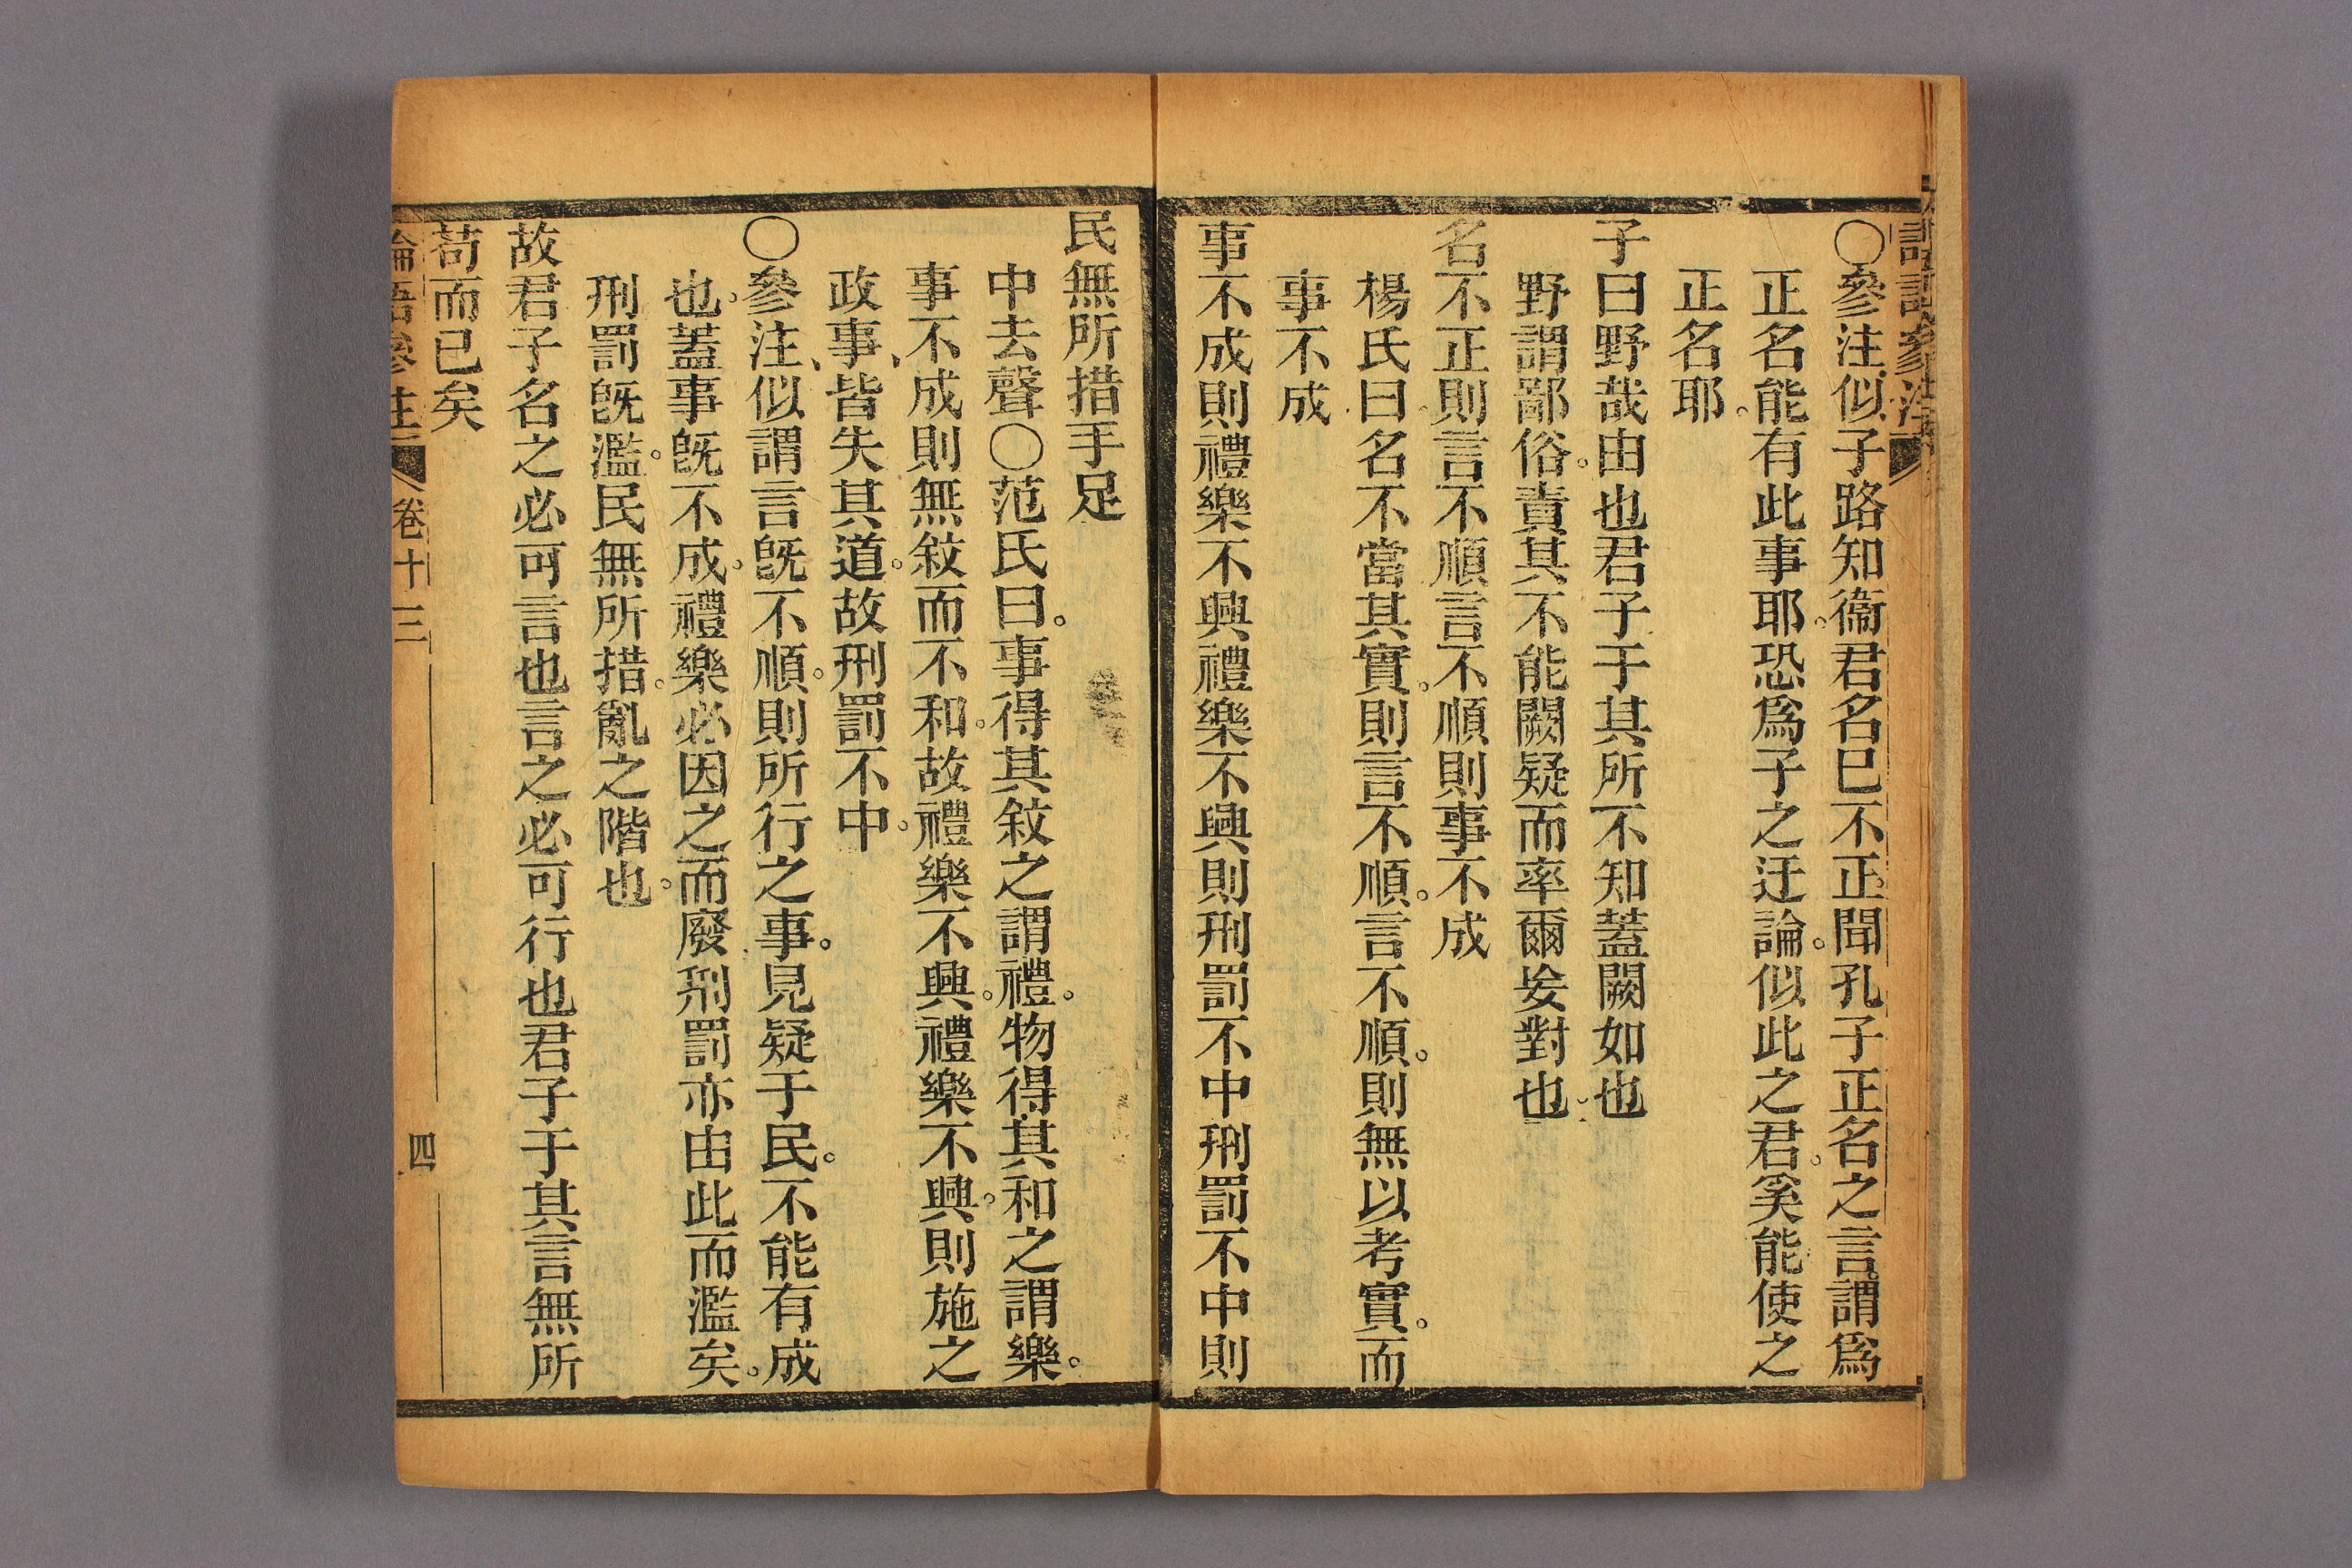 〇參注似子路知衞君名已不正聞孔子正名之言謂爲
正名能有此事耶。恐爲子之迂論。似此之君。奚能使之
正名耶。
子曰野哉由也君子于其所不知蓋闕如也
野謂鄙俗。責其不能闕疑而率爾妄對也
名不正則言不順言不順則事不成
楊氏曰名不當其實。則言不順。言不順。則無以考實。而
事不成
事不成則禮樂不興禮樂不興則刑罰不中刑罰不中則
民無所措手足
中去聲〇范氏曰。事得其敘之謂禮。物得其和之謂樂。
事不成則無敘而不和。故禮樂不興。禮樂不興。則施之
政事、皆失其道。故刑罰不中。
〇參注、似謂言旣不順。則所行之事。見疑于民。不能有成
也。蓋事旣不成。禮樂必因之而廢刑罰亦由此而濫矣。
刑罰旣濫。民無所措。亂之階也。
故君子名之必可言也言之必可行也君子于其言無所
苟而已矣
論語參註
卷十三
四